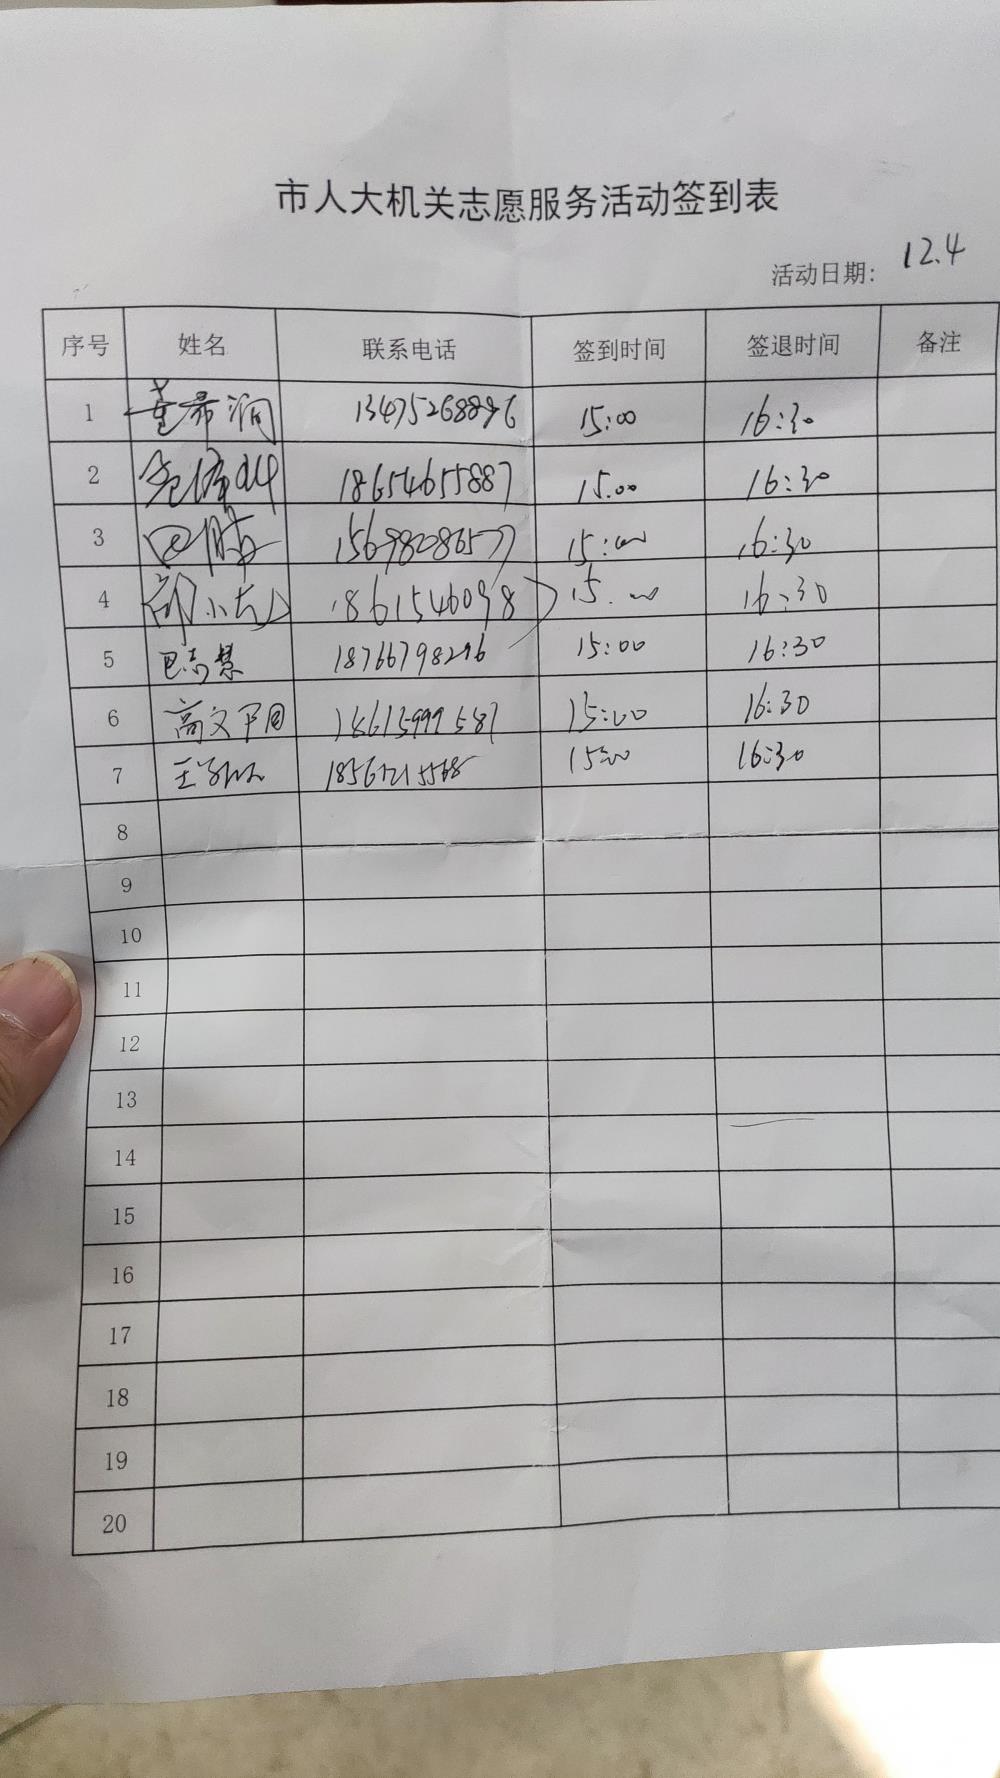 市人大机关志愿服务活动签到表
活动日期: 12.4
序号 姓名 联系电话 签到时间 签退时间 备注
1 董希润 13475268896 15:00 16:30
2 18654655887 15:00 16:30
3 15698086577 15:00 16:30
4 18615460987 15:00 16:30
5 巴志慧 18766798296 15:00 16:30
6 高文 15:00 16:30
7 王 15:00 16:30
8
9
10
11
12
13
14
15
16
17
18
19
20